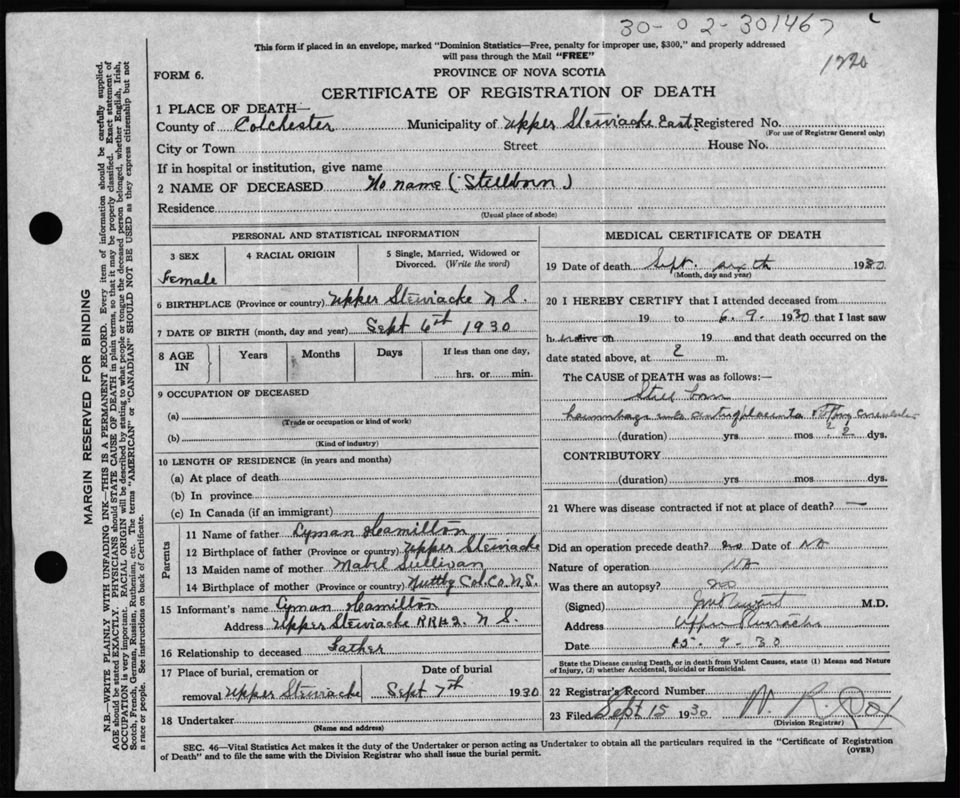 30-02-301467
1220
This form if placed in an envelope, marked "Dominion Statistics—Free, penalty for improper use, $300," and properly addressed
will pass through the Mail "FREE"
FORM 6.
PROVINCE OF NOVA SCOTIA
CERTIFICATE OF REGISTRATION OF DEATH
1 PLACE OF DEATH—
County of Colchester Municipality of Upper Stewiacke East Registered No.
(For use of Registrar General only)
City or Town Street House No.
If in hospital or institution, give name
2 NAME OF DECEASED No name (Stillborn)
Residence
(Usual place of abode)
PERSONAL AND STATISTICAL INFORMATION
3 SEX 4 RACIAL ORIGIN 5 Single, Married, Widowed or
Divorced. (Write the word)
Female
6 BIRTHPLACE (Province or country) Upper Stewiacke N S.
7 DATE OF BIRTH (month, day and year) Sept 6th 1930
8 AGE IN Years Months Days If less than one day,
hrs. or min.
9 OCCUPATION OF DECEASED
(a)
(Trade or occupation or kind of work)
(b)
(Kind of industry)
10 LENGTH OF RESIDENCE (in years and months)
(a) At place of death
(b) In province
(c) In Canada (if an immigrant)
Parents
11 Name of father Lyman Hamilton
12 Birthplace of father (Province or country) Upper Stewiacke
13 Maiden name of mother Mabel Sullivan
14 Birthplace of mother (Province or country) Nuttby Col. Co. N.S.
15 Informant's name Lyman Hamilton
Address Upper Stewiacke RR#2. N S.
16 Relationship to deceased Father
17 Place of burial, cremation or Date of burial
removal Upper Stewiacke Sept 7th 1930
18 Undertaker
(Name and address)
MEDICAL CERTIFICATE OF DEATH
19 Date of death Sept. sixth 1930
(Month, day and year)
20 I HEREBY CERTIFY that I attended deceased from
19 to 6. 9. 1930 that I last saw
h alive on 19 and that death occurred on the
date stated above, at 2 m.
The CAUSE of DEATH was as follows:—
Still born
haemorrhage into placenta
(duration) yrs. mos. 2 dys.
CONTRIBUTORY
(duration) yrs. mos. dys.
21 Where was disease contracted if not at place of death? —
Did an operation precede death? no Date of NA
Nature of operation NA
Was there an autopsy? no
(Signed) M.D.
Address Upper Stewiacke
Date 15-9-30
State the Disease causing Death, or in death from Violent Causes, state (1) Means and Nature
of Injury, (2) whether Accidental, Suicidal or Homicidal.
22 Registrar's Record Number
23 Filed Sept 15 1930 W. R. Cox
(Division Registrar)
SEC. 46—Vital Statistics Act makes it the duty of the Undertaker or person acting as Undertaker to obtain all the particulars required in the "Certificate of Registration
of Death" and to file the same with the Division Registrar who shall issue the burial permit. (OVER)
MARGIN RESERVED FOR BINDING
N.B.—WRITE PLAINLY WITH UNFADING INK—THIS IS A PERMANENT RECORD. Every item of information should be carefully supplied.
AGE should be stated EXACTLY. PHYSICIANS should STATE CAUSE OF DEATH in plain terms, so that it may be properly classified. Exact statement of
OCCUPATION is very important. RACIAL ORIGIN will be described by stating to what people or tongue the deceased person belonged, whether English, Irish,
Scotch, French, German, Russian, Ruthenian, etc. The terms "AMERICAN" or "CANADIAN" SHOULD NOT BE USED as they express citizenship but not
a race or people. See instructions on back of Certificate.